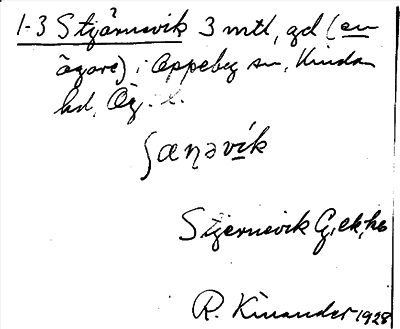 1-3 Stjärnevik 3 mtl, gd (en
ägare) i Oppeby sn, Kinda
hd, Ög. l.
ʃaŋəvik
Stjernevik G. ek, ho
R. Kinander 1928